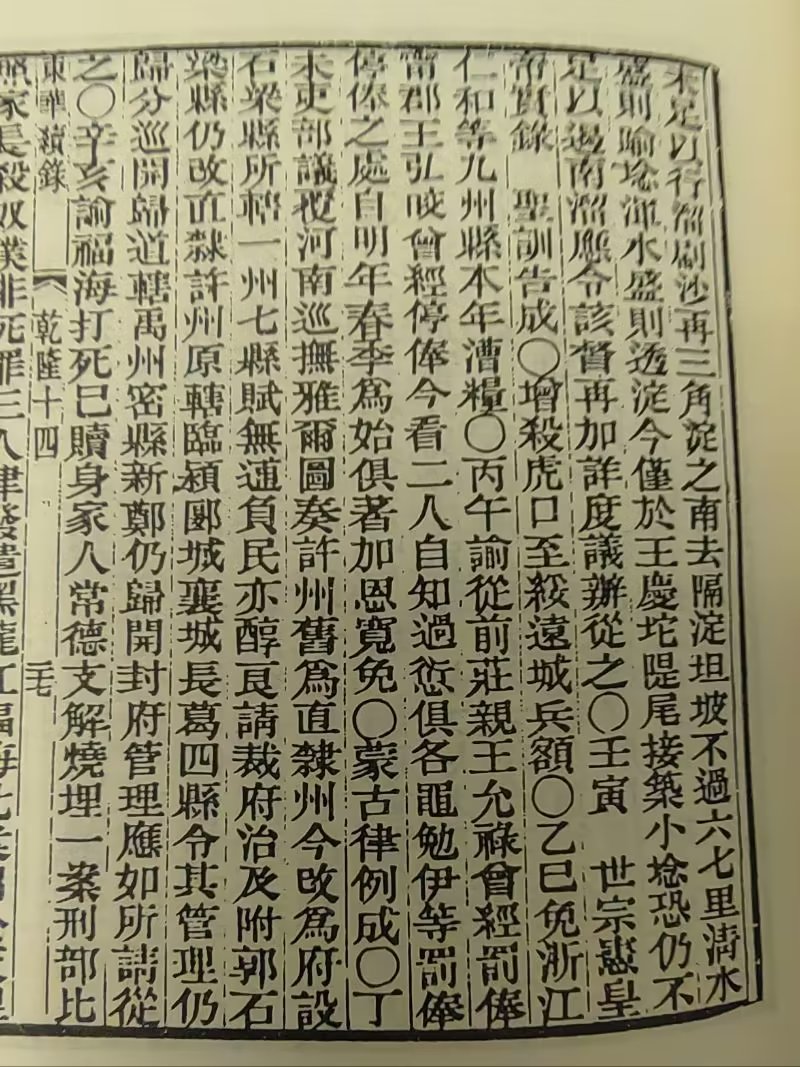 未足以行溜刷沙再三角淀之南去隔淀坦坡不過六七里淸水
盛則喻埝渾水盛則透淀今僅於王慶坨隄尾接築小埝恐仍不
足以遏南溜應令該督再加詳度議辦從之〇壬寅 世宗憲皇
帝實錄 聖訓告成〇增殺虎口至綏遠城兵額〇乙巳免浙江
仁和等九州縣本年漕糧〇丙午諭從前莊親王允祿曾經罰俸
甯郡王弘晈曾經停俸今看二人自知過愆俱各黽勉伊等罰俸
停俸之處自明年春季爲始俱著加恩寬免〇蒙古律例成〇丁
未吏部議覆河南巡撫雅爾圖奏許州舊爲直隸州今改爲府設
石梁縣所轄一州七縣賦無逋負民亦醇良請裁府治及附郭石
梁縣仍改直隸許州原轄臨潁郾城襄城長葛四縣令其管理仍
歸分巡開歸道轄禹州密縣新鄭仍歸開封府管理應如所請從
之〇辛亥諭福海打死已贖身家人常德支解燒埋一案刑部比
東華續錄 乾隆十四 二七
照家長殺奴僕非死罪三人律發遣黑龍江福海